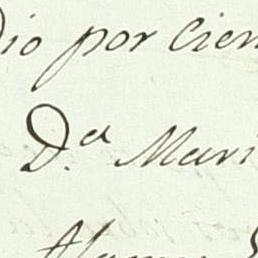 dio por cien
D.ª Mari